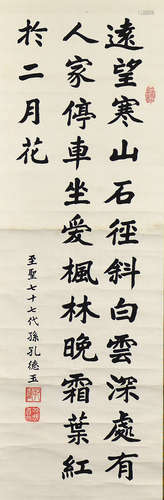 遠望寒山石徑斜白雲深處有
人家停車坐愛楓林晚霜葉紅
於二月花
至聖七十七代孫孔德玉